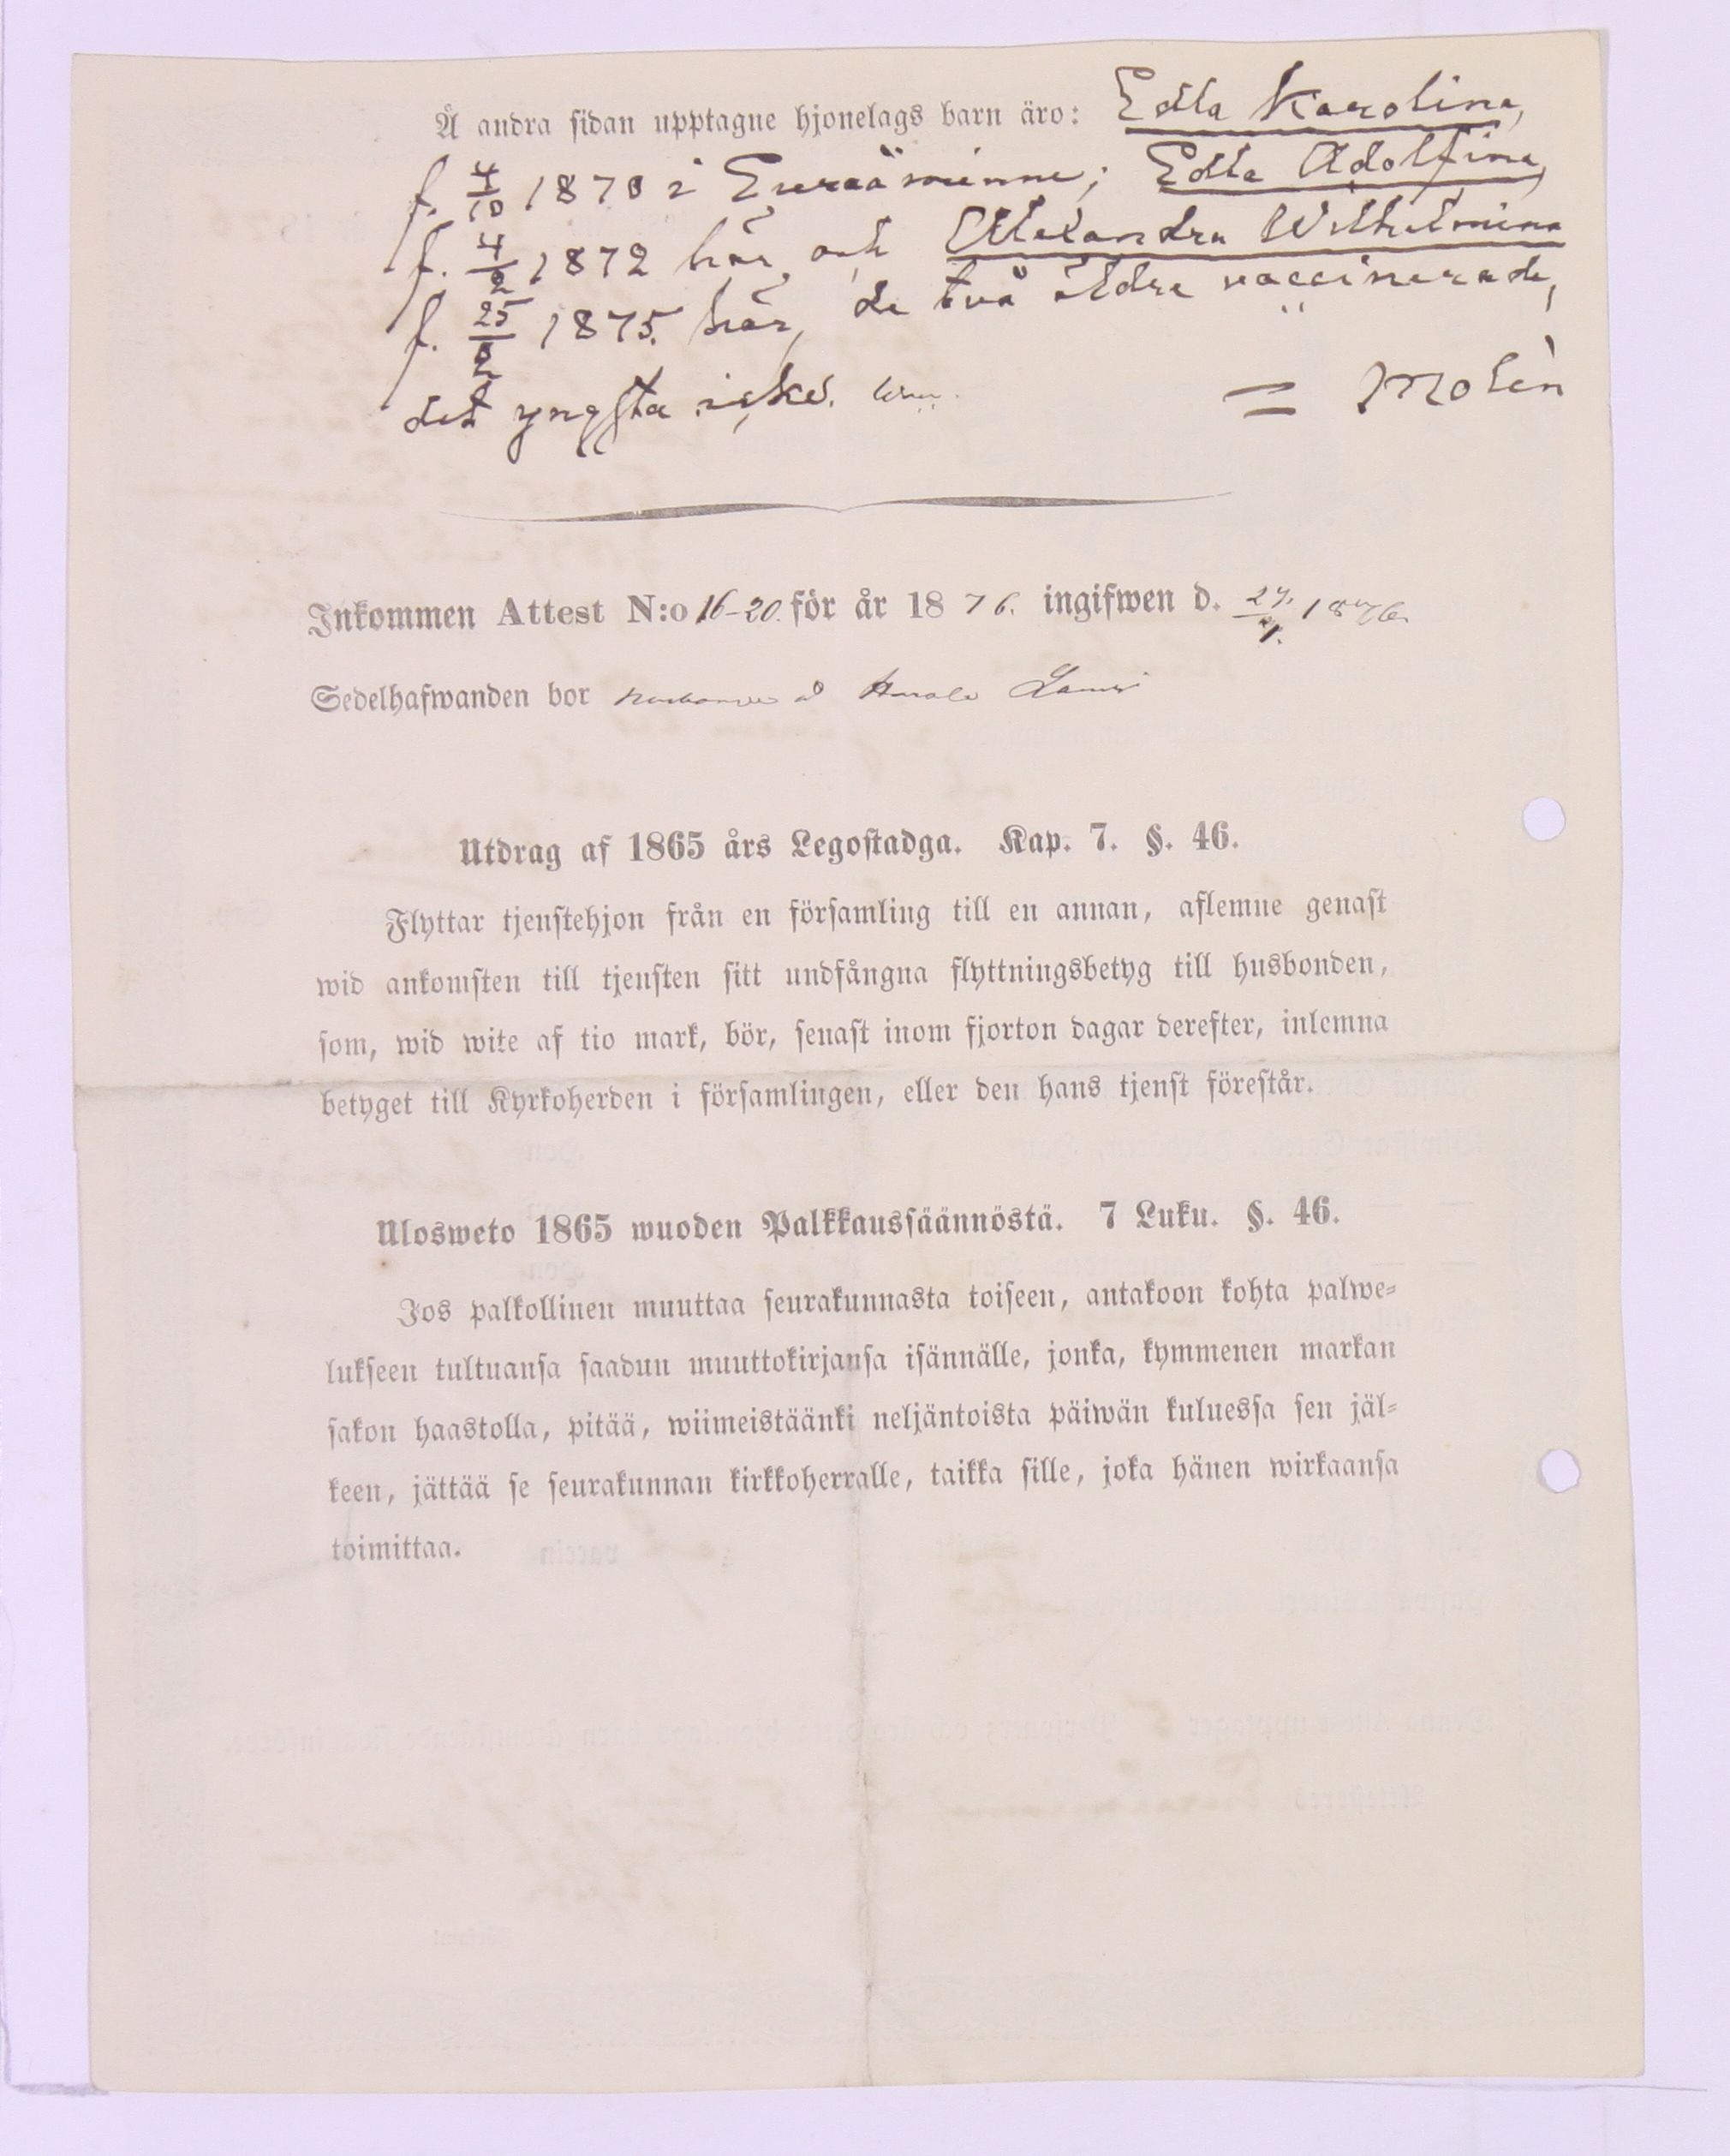 Å andra sidan upptagne hjonelags barn äro: Edla Karolina,
f. 4/10 1870 i Euraåminne; Edla Adolfina,
f. 4/2 1872 här, och Alexandra Wilhelmina
f. 25/2 1875. här, de två äldre vaccinerade,
det yngsta icke.
= Molin
Inkommen Attest N:o 16-20. för år 1876. ingifwen d. 1876.
Sedelhafwanden bor
Utdrag af 1865 års Legostadga. Kap. 7. §. 46.
Flyttar tjenstehjon från en församling till en annan, aflemne genast
wid ankomsten till tjensten sitt undfångna flyttningsbetyg till husbonden,
som, wid wite af tio mark, bör, senast inom fjorton dagar derefter, inlemna
betyget till Kyrkoherden i församlingen, eller den hans tjenst förestår.
Ulosweto 1865 wuoden Palkkaussäännöstä. 7 Luku. §. 46.
Jos palkollinen muuttaa seurakunnasta toiseen, antakoon kohta palwe-
lukseen tultuansa saadun muuttokirjansa isännälle, jonka, kymmenen markan
sakon haastolla, pitää, wiimeistäänki neljäntoista päiwän kuluessa sen jäl-
keen, jättää se seurakunnan kirkkoherralle, taikka sille, joka hänen wirkaansa
toimittaa.